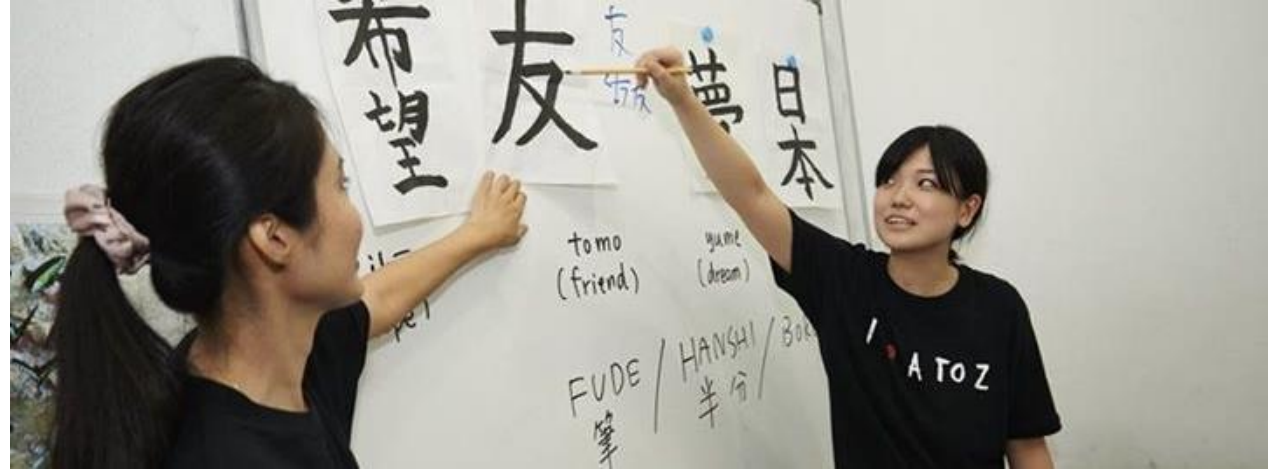 希望
友
友
夢
日本
tomo
(friend)
yume
(dream)
FUDE / HANSHI /
筆
半分
I A TO Z